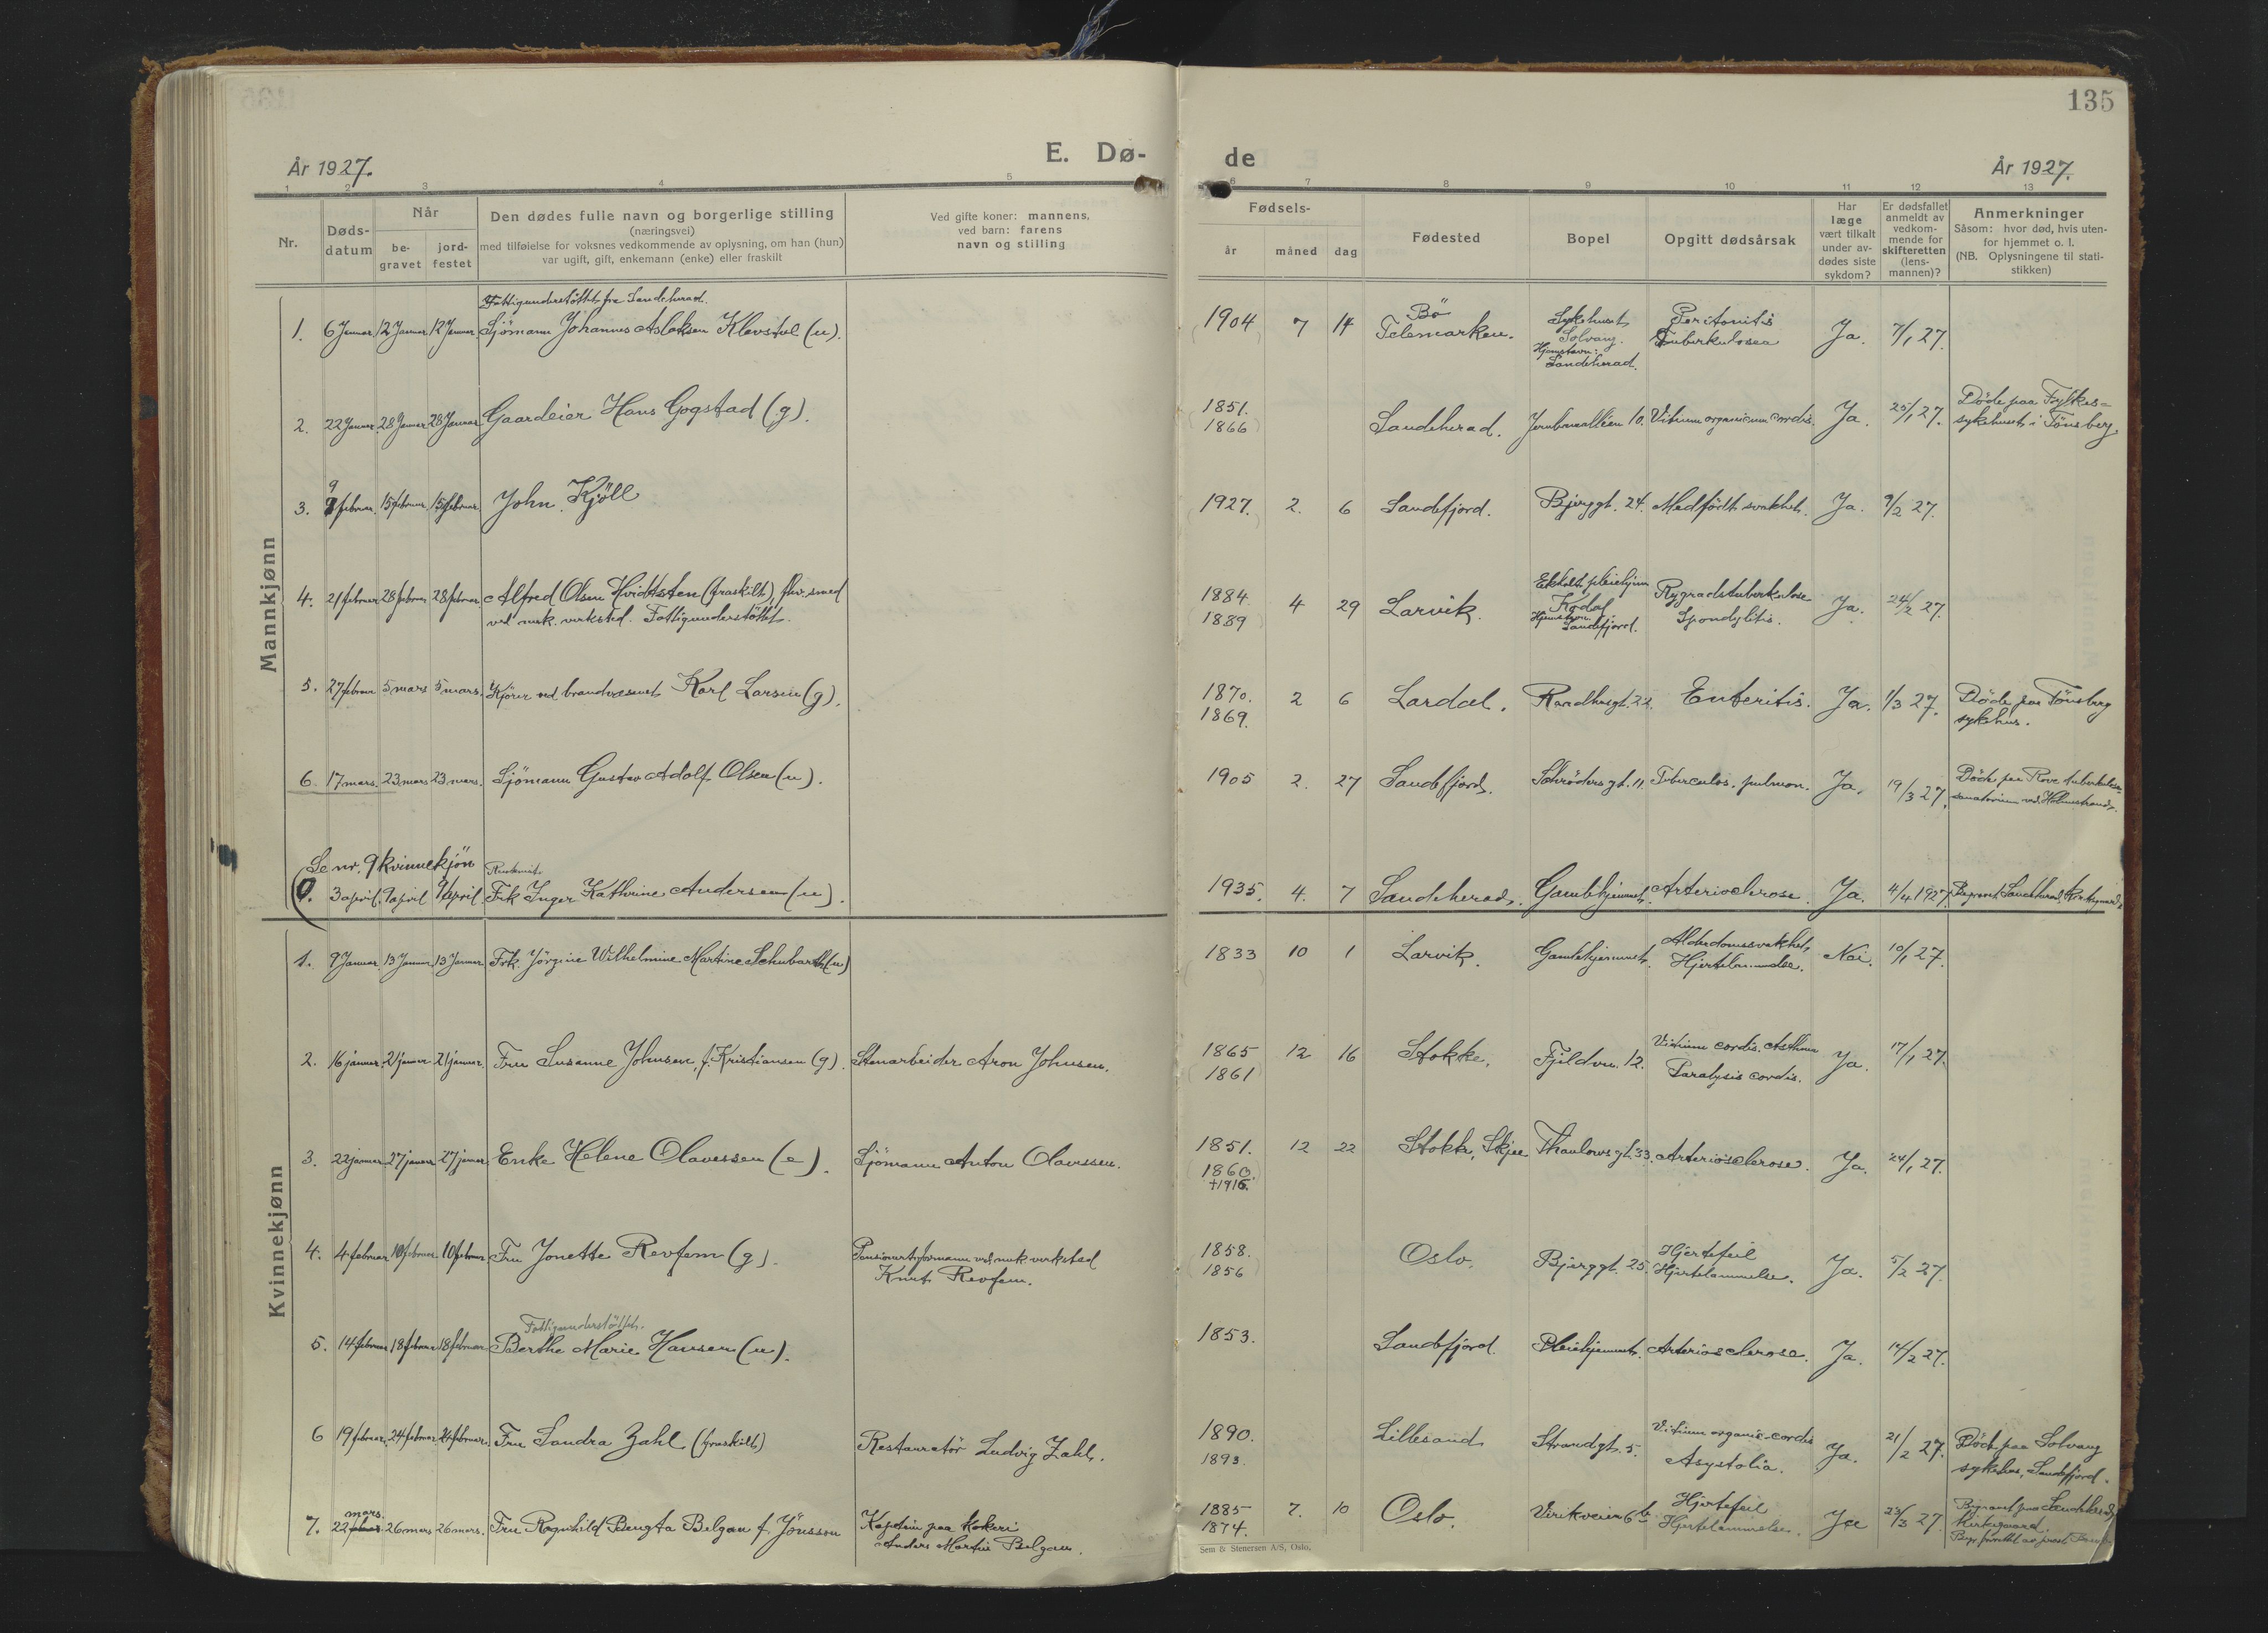 135
E. Dø-
de
År 1927.
År 1927.
1 2 3 4 5 6 7 8 9 10 11 12 13
Nr.
Døds-
datum
Når
be-
gravet
jord-
festet
Den dødes fulle navn og borgerlige stilling
(næringsvei)
med tilføielse for voksnes vedkommende av oplysning, om han (hun)
var ugift, gift, enkemann (enke) eller fraskilt
Ved gifte koner: mannens,
ved barn: farens
navn og stilling
Fødsels-
år måned dag
Fødested
Bopel
Opgitt dødsårsak
Har
læge
vært tilkalt
under av-
dødes siste
sykdom?
Er dødsfallet
anmeldt av
vedkom-
mende for
skifteretten
(lens-
mannen)?
Anmerkninger
Såsom: hvor død, hvis uten-
for hjemmet o. l.
(NB. Oplysningene til stati-
stikken)
Mannkjønn
Fattigunderstøttet fra Sandeherad.
1. 6 Januar 12 Januar 12 Januar Sjömann Johannes Aslaksen Klevstul (u).
1904 7 14
Bö
Telemarken.
Sykehuset
Solvang.
Hjemstavn:
Sandeherad.
Peritonitis
Tuberkulosea
Ja. 7/1 27.
2. 22 Januar 28 Januar 28 Januar Gaardeier Hans Gogstad (g).
1851.
1866
Sandeherad. Jernbanealléen 10. Vitium organicum cordis. Ja. 25/1 27.
Döde paa Fylkes=
sykehuset i Tönsberg.
3. 9 februar. 15 februar. 15 februar. John Kjöll
1927. 2. 6 Sandefjord. Bjerggt. 24. Medfödt svakhet. Ja. 9/2 27.
4. 21 februar 28 februar 28 februar Alfred Olsen Hvidtsten (fraskilt), fhv. smed
ved mek. verksted. Fattigunderstöttet.
1884.
1889
4 29 Larvik.
pleiehjem
Kodal.
Hjemstavn:
Sandefjord.
Rygradstuberkulose
Spondylitis.
Ja. 24/2 27.
5. 27 februar 5 mars 5 mars. Kjörer ved brandvæsenet Karl Larsen (g).
1870.
1869.
2 6 Lardal. Raadhusgt. 22. Enteritis. Ja. 1/3 27.
Döde paa Tönsberg
sykehus.
6. 17 mars. 23 mars 23 mars. Sjömann Gustav Adolf Olsen (u).
1905 2. 27 Sandefjord. Schröders gt. 11. Tuberculos. pulmon. Ja. 19/3 27.
Döde paa Rove tuberkulose-
sanatorium ved Holmestrand.
Se nr. 9 kvinnekjön
3 april. 9 april 9 april. Frk Inger Kathrine Andersen (u).
1935. 4. 7 Sandeherad. Gamlehjemmet. Arteriosclerose. Ja. 4/4 1927. Begravet Sandeherad kirkegaard.
Kvinnekjønn
1. 9 Januar. 13 Januar. 13 Januar Frk. Jörgine Wilhelmine Martine Schubarth (u)
1833 10 1 Larvik. Gamlehjemmet.
Alderdomssvakhet,
Hjertelammelse.
Nei. 10/1 27.
2. 16 januar. 21 januar 21 januar. Fru Susanne Johnsen, f. Kristiansen (g). Stenarbeider Aron Johnsen.
1865
1861
12 16 Stokke. Fjeldvn. 12.
Vitium cordis. Asthma
Paralysis cordis.
Ja. 17/1 27.
3. 22 januar 27 januar 27 januar. Enke Helene Olavessen (e). Sjömann Anton Olavessen.
1851.
1860.
†1916.
12 22 Stokke, Skjee Thaulows gt. 33. Arteriosclerose. Ja. 24/1 27.
4. 4 februar 10 februar 10 februar Fru Jonette Revfem (g).
Pensionert formann ved mek verksted
Knut Revfem.
1858.
1856
Oslo. Bjerggt. 25.
Hjertefeil
Hjertelammelse.
Ja. 5/2 27.
Fattigunderstöttet.
5. 14 februar 18 februar 18 februar Berthe Marie Hansen (u).
1853. Sandefjord. Pleiehjemmet. Arteriosclerose. Ja. 14/2 27.
6 19 februar. 24 februar. 24 februar. Fru Sandra Zahl (fraskilt) Restauratör Ludvig Zahl.
1890.
1893.
Lillesand Strandgt. 5.
Vitium organic. cordis
Asystolia.
Ja. 21/2 27.
Död paa Solvang
sykehus, Sandefjord.
mars.
7. 22 februar. 26 mars 26 mars. Fru Ragnhild Bengta Belgau f. Jönsson
Kaptein paa kokeri
Anders Martin Belgau.
1885
1874.
7. 10 Oslo. Virikveien 6 b.
Hjertefeil
Hjertelammelse.
Ja 23/3 27.
Begravet paa Sandeherad
kirkegaard.
Sem & Stenersen A/S, Oslo.